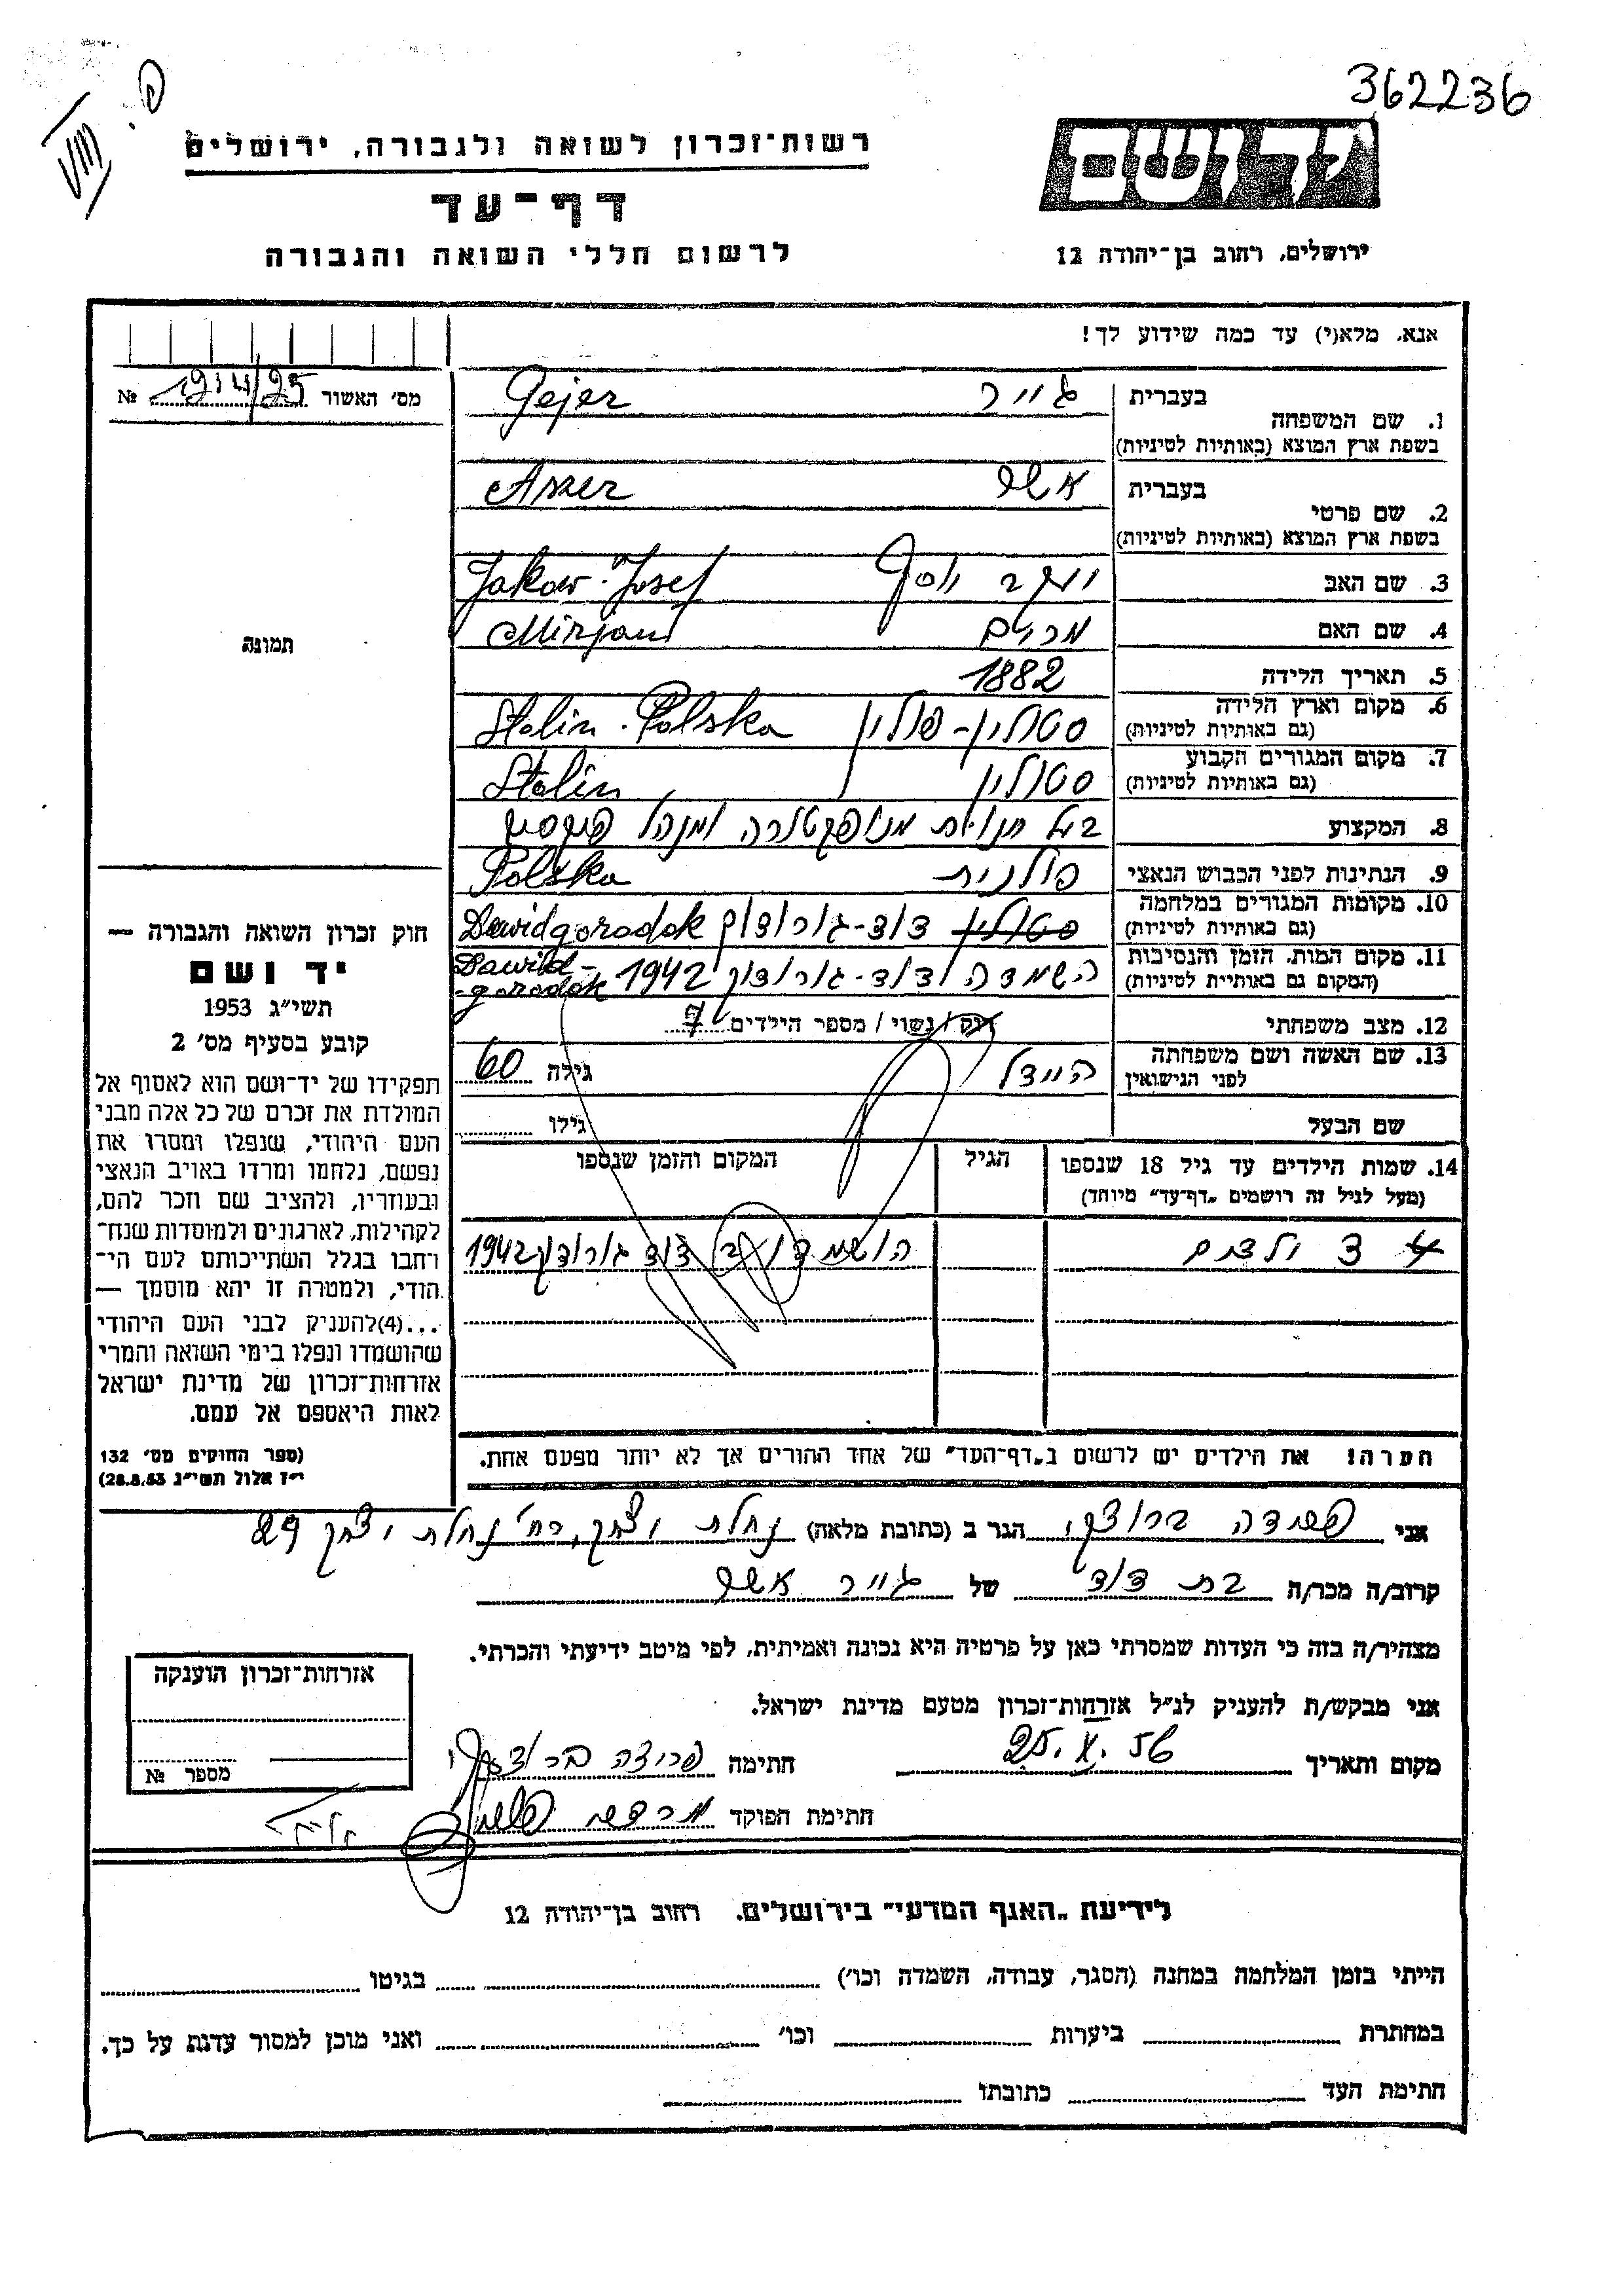 362236
רשות־זכרון לשואה ולגבורה, ירושלים
יד ושם
דף־עד
לרשום חללי השואה והגבורה
ירושלים, רחוב בן־יהודה 12
אנא, מלא(י) עד כמה שידוע לך!
מס׳ האשור № 1214/25
1. שם המשפחה בעברית גייר Gejer
בשפת ארץ המוצא (באותיות לטיניות)
2. שם פרטי בעברית אשר Aszer
בשפת ארץ המוצא (באותיות לטיניות)
3. שם האב יעקב יוסף Jakow-Josef
4. שם האם מרים Mirjam
תמונה
5. תאריך הלידה 1882
6. מקום וארץ הלידה סטולין - פולין Stolin - Polska
(גם באותיות לטיניות)
7. מקום המגורים הקבוע סטולין Stolin
(גם באותיות לטיניות)
8. המקצוע בעל חנוית מנופקטורה ומנהל
9. הנתינות לפני הכבוש הנאצי פולנית Polska
10. מקומות המגורים במלחמה סטולין דוד-גורודוק Dawidgorodok
(גם באותיות לטיניות)
11. מקום המות, הזמן והנסיבות השמדה דוד-גורודוק 1942 Dawid-gorodok
(המקום גם באותיות לטיניות)
12. מצב משפחתי רוק / נשוי / מספר הילדים 7
13. שם האשה ושם משפחתה היידל גילה 60
לפני הנישואין
שם הבעל גילו
14. שמות הילדים עד גיל 18 שנספו הגיל המקום והזמן שנספו
(מעל לגיל זה רושמים „דף־עד” מיוחד)
ילדים הושמדו דוד גורודוק 1942
הערה! את הילדים יש לרשום ב„דף־העד” של אחד ההורים אך לא יותר מפעם אחת.
חוק זכרון השואה והגבורה —
יד ושם
תשי״ג 1953
קובע בסעיף מס׳ 2
תפקידו של יד־ושם הוא לאסוף אל
המולדת את זכרם של כל אלה מבני
העם היהודי, שנפלו ומסרו את
נפשם, נלחמו ומרדו באויב הנאצי
ובעוזריו, ולהציב שם וזכר להם,
לקהילות, לארגונים ולמוסדות שנח־
רחבו בגלל השתייכותם לעם הי־
הודי, ולמטרה זו יהא מוסמך —
...(4)להעניק לבני העם היהודי
שהושמדו ונפלו בימי השואה והמרי
אזרחות־זכרון של מדינת ישראל
לאות היאספם אל עמם.
(ספר החוקים מס׳ 132
י״ז אלול תשי״ג 28.8.53)
אני ברודצקי הגר ב (כתובת מלאה) נחלת יצחק, רח׳ נחלת יצחק 29
קרוב/ה מכר/ה בת דוד של גייר אשר
מצהיר/ה בזה כי העדות שמסרתי כאן על פרטיה היא נכונה ואמיתית, לפי מיטב ידיעתי והכרתי.
אני מבקש/ת להעניק לנ״ל אזרחות־זכרון מטעם מדינת ישראל.
מקום ותאריך 25.X.56 חתימה
חתימת הפוקד
אזרחות־זכרון הוענקה
מספר №
לידיעת „האגף המדעי” בירושלים, רחוב בן־יהודה 12
הייתי בזמן המלחמה במחנה (הסגר, עבודה, השמדה וכו׳) בגיטו
במחתרת ביערות וכו׳ ואני מוכן למסור עדות על כך.
חתימת העד כתובתו